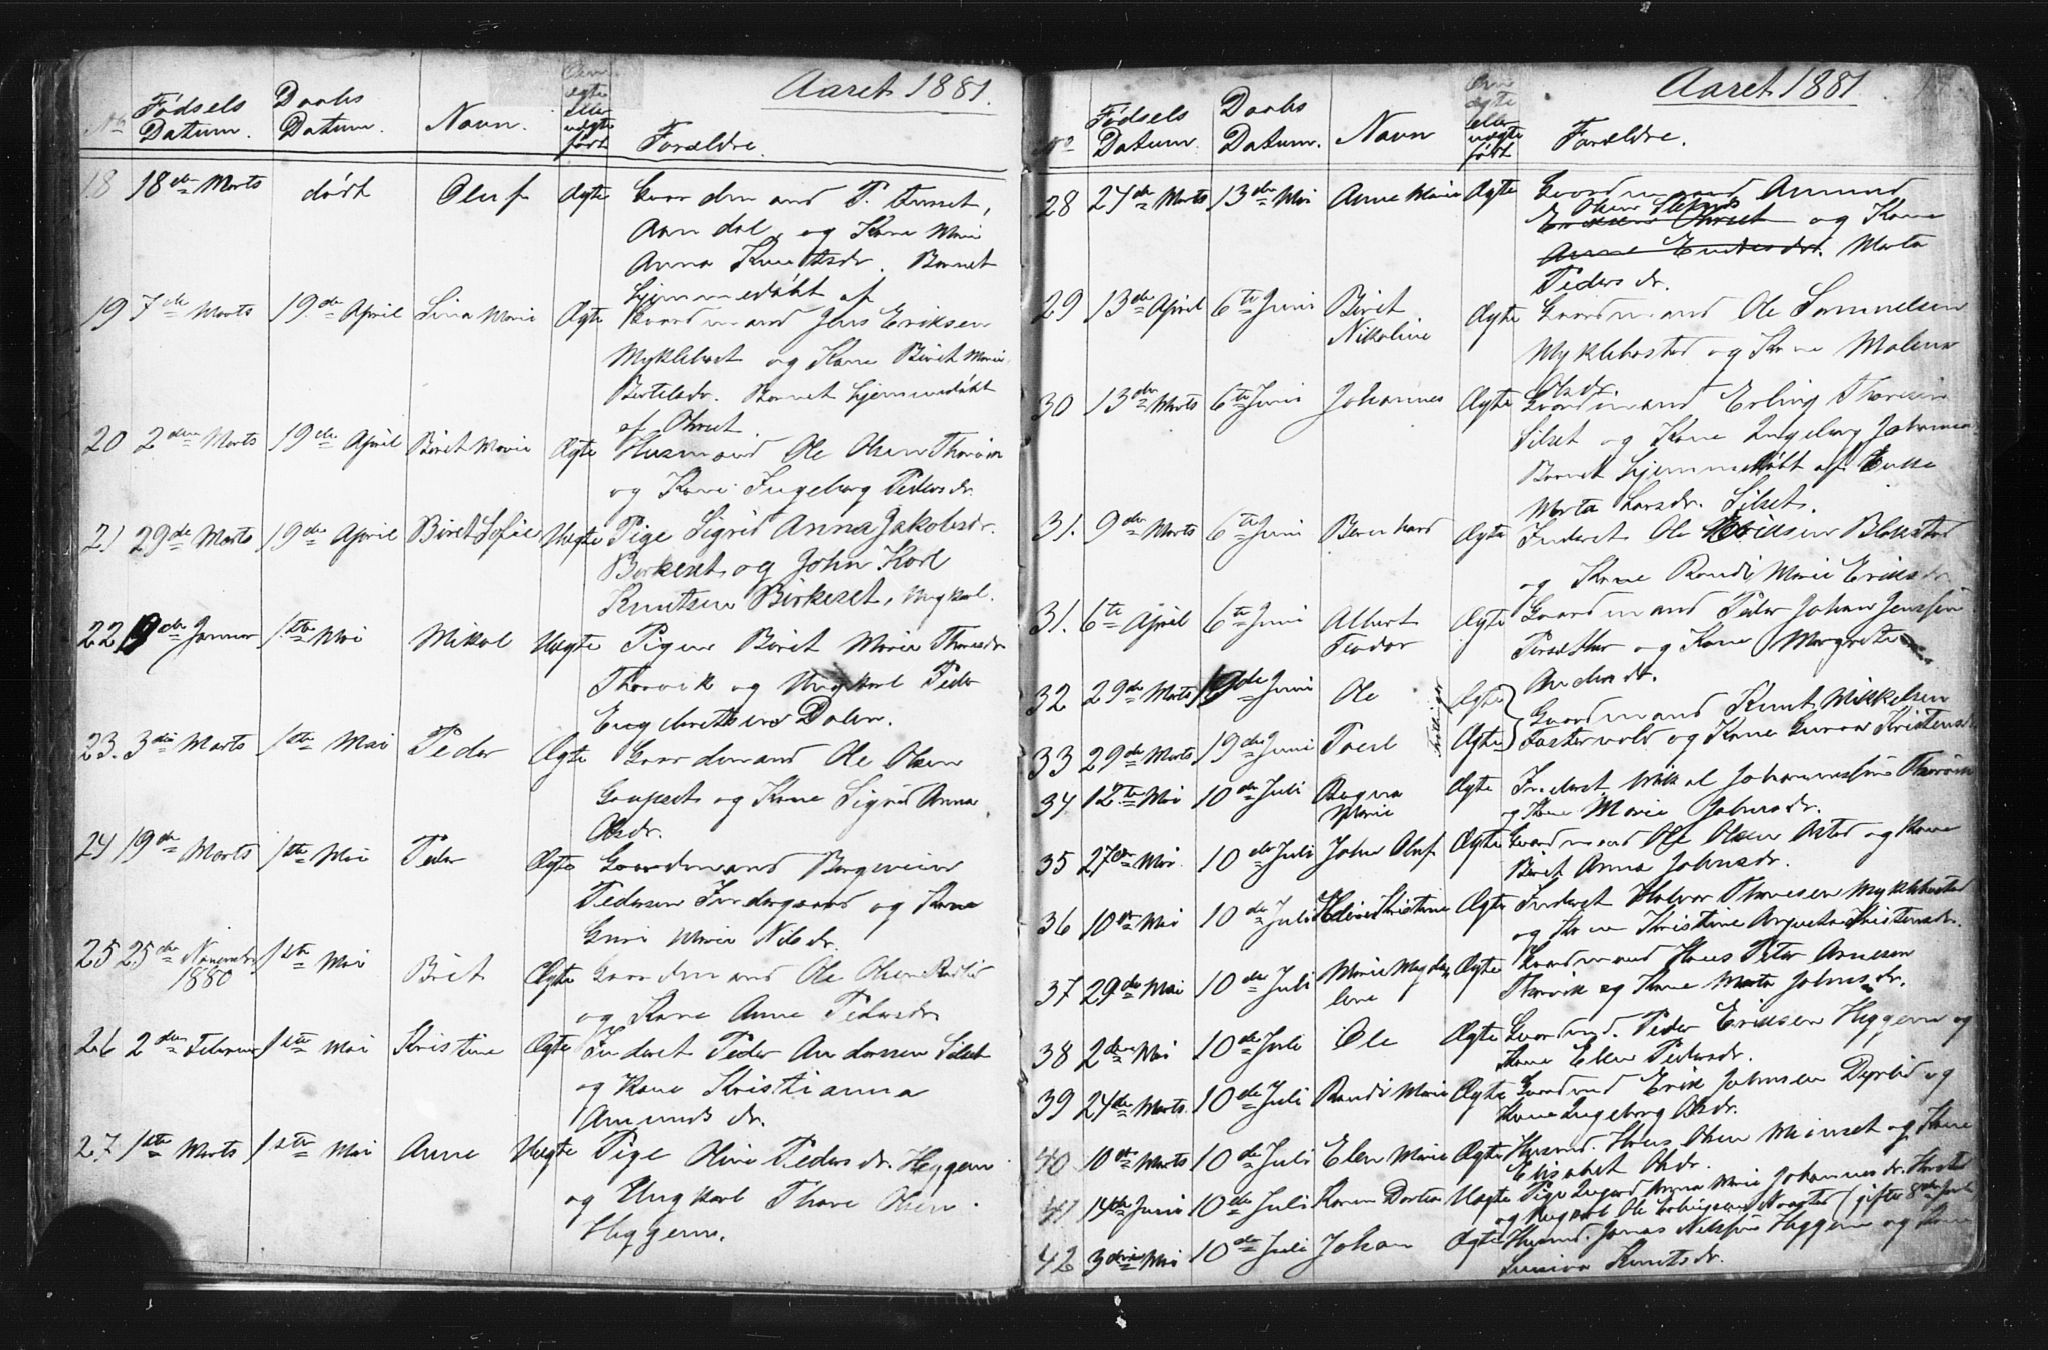 Aaret 1881.
No Fødsels Datum. Daabs Datum. Navn. Om ægte eller uægte født Forældre.
18 18de Marts dødt Oluf Ægte Gaardmand P. Tunset,
og Kone Marie
Anna Knutsdr. Barnet
hjemmedøbt af
19 7de Marts 19de April Lina Marie Ægte Gaardmand Jens Eriksen
Myklebost og Kone Biret Marie
Bertelsdr. Barnet hjemmedøbt
af Ohrset.
20 2den Marts 19de April Biret Marie Ægte Husmand Ole Olsen Thorvik
og Kone Ingeborg Pedersdr.
21 29de Marts 19de April Biret Sofie Uægte Pige Sigrid Anna Jakobsdr.
Birkeset og John Karl
Knutsen Birkeset, Ungkarl.
22 19de Januar 1ste Mai Mikal Uægte Pigen Biret Marie Thoresdr.
Thorvik og Ungkarl Peder
Engebretsen Dalen.
23. 3die Marts 1ste Mai Peder Ægte Gaardmand Ole Olsen
Goupset og Kone Sigrid Anna
Olsdr.
24 19de Marts 1ste Mai Peder Ægte Gaardmand Bergsvein
Pedersen Indergaard og Kone
Guri Marie Nilsdr.
25 25de November 1880 1ste Mai Brit Ægte Gaardmand Ole Olsen Rødlid
og Kone Anne Pedersdr.
26 2den Februar 1ste Mai Kristine Ægte Inderst Peder Anderssen Silset
og Kone Kristianna
Amunds dr.
27. 1ste Marts 1ste Mai Anne Uægte Pige Oline Pedersdr. Heggem
og Ungkarl Thore Olsen
Heggem.
Aaret 1881
No Fødsels Datum Daabs Datum. Navn Om ægte eller uægte født Forældre.
28 27de Marts 13de Mai Anne Marie Ægte Gaardmand Amund
Olsen
Eriksen Ohrset og Kone
Anne Endresdr. Marta
Pedersdr.
29 13de April 6te Juni Biret Nikoline Ægte Gaardmand Ole Samuelsen
Myklebostad og Kone Malena
Olsdr.
30 13de Marts 6te Juni Johannes Ægte Gaardmand Erling Thoresen
Silset og Kone Ingeborg Johannesdr
Barnet hjemmedøbt af Enke
Marta Larsdr. Silset.
31. 9de Marts 6te Juni Bernhard Ægte Inderst Ole Eriksen Blakstad
og Kone Randi Marie Eriksdr.
31. 6te April 6te Juni Albert Teodor Ægte Gaardmand Peder Johan Jenssen
og Kone Margrete
Andersdr.
32 29de Marts 19de Juni Ole Tvillinger Ægte Gaardmand Knut Mikkelsen
33 29de Marts 19de Juni Poul Ægte Fostervold og Kone Guroe Kristensdr.
34 12te Mai 10de Juli Ragna Marie Ægte Inderst Mikal Johannessen Thorvik
og Kone Marie Johnsdr.
35 27de Mai. 10de Juli John Oluf Ægte Gaardmand Ole Olsen Astad og Kone
Biret Anna Johnsdr.
36 10de Mai 10de Juli Kristine Ægte Inderst Halvor Thoresen Myklebostad
og Kone Kristine Augusta Kristensdr.
37 29de Mai 10de Juli Marie Magdalene Ægte Gaardmand Hans Peter Arnesen
Thorvik og Kone Marta Johnsdr.
38 2den Mai 10de Juli Ole Ægte Gaardmd. Peder Eriksen Heggem og
Kone Elen Pedersdr.
39 24de Marts. 10de Juli Randi Marie Ægte Gaardmd Erik Johnsen Dyrlid og
Kone Ingeborg Olsdr.
40 10de Marts 10de Juli Elen Marie Ægte Husmd. Hans Olsen Meinset og Kone
Elisabet Olsdr.
41 14de Juni 10de Juli Karen Dortea Uægte Pige Ingard Anna Marie Johannesdr.
og Ungkarl Ole (gifte 8de Juli)
42 3die Mai 10de Juli Johan Ægte Husmd. Jonas Nilssen Heggem og Kone
Knutsdr.